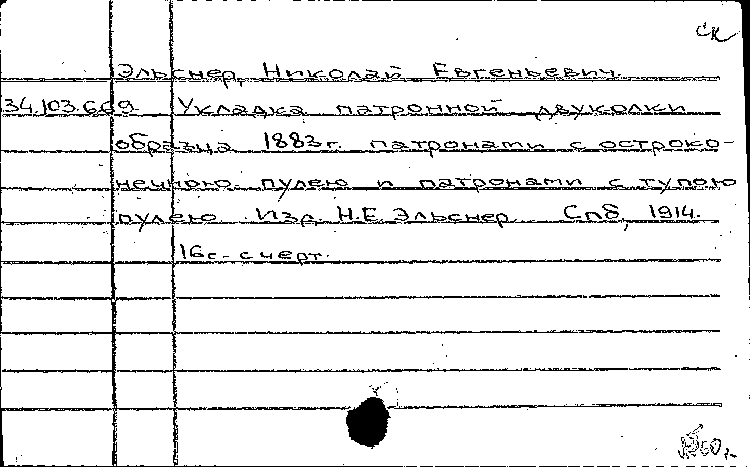 СК
Эльснер, Николай Евгеньевич.
34.103.669 Укладка патронной двуколки
образца 1883 г. патронами с остроко-
нечною пулею и патронами с тупою
пулею. Изд. Н.Е. Эльснер. Спб, 1914.
16 с. с черт.